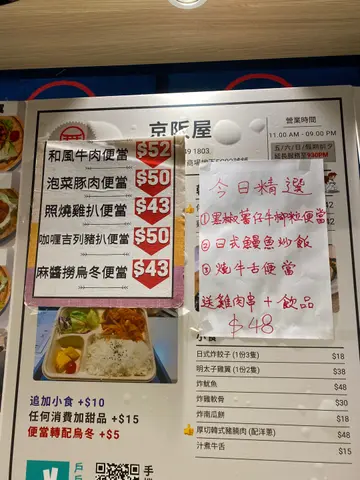 京阪屋
營業時間
11.00 AM - 09.00 PM
五/六/日/假期前夕
9:30PM
和風牛肉便當 $52
泡菜豚肉便當 $50
照燒雞扒便當 $43
咖喱吉列豬扒便當 $50
麻醬撈烏冬便當 $43
今日精選
①黑椒薯仔牛柳粒便當
②日式鰻魚炒飯
③燒牛舌便當
送雞肉串 + 飲品
$48
小食
日式炸餃子 (1份3隻) $18
明太子雞翼 (1份2隻) $38
炸魷魚 $48
炸雞軟骨 $30
炸南瓜餅 $18
厚切韓式豬腩肉 (配洋蔥) $48
汁煮牛舌 $15
追加小食 +$10
任何消費加甜品 +$15
便當轉配烏冬 +$5